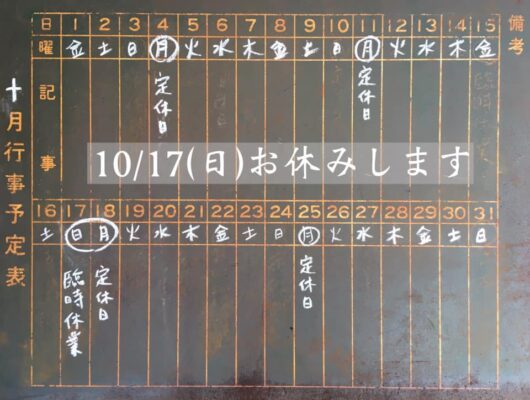 十月行事予定表
日 1 2 3 4 5 6 7 8 9 10 11 12 13 14 15 備考
曜 金 土 日 月 火 水 木 金 土 日 月 火 水 木 金
記事
定休日
定休日
10/17(日)お休みします
16 17 18 19 20 21 22 23 24 25 26 27 28 29 30 31
土 日 月 火 水 木 金 土 日 月 火 水 木 金 土 日
臨時休業
定休日
定休日